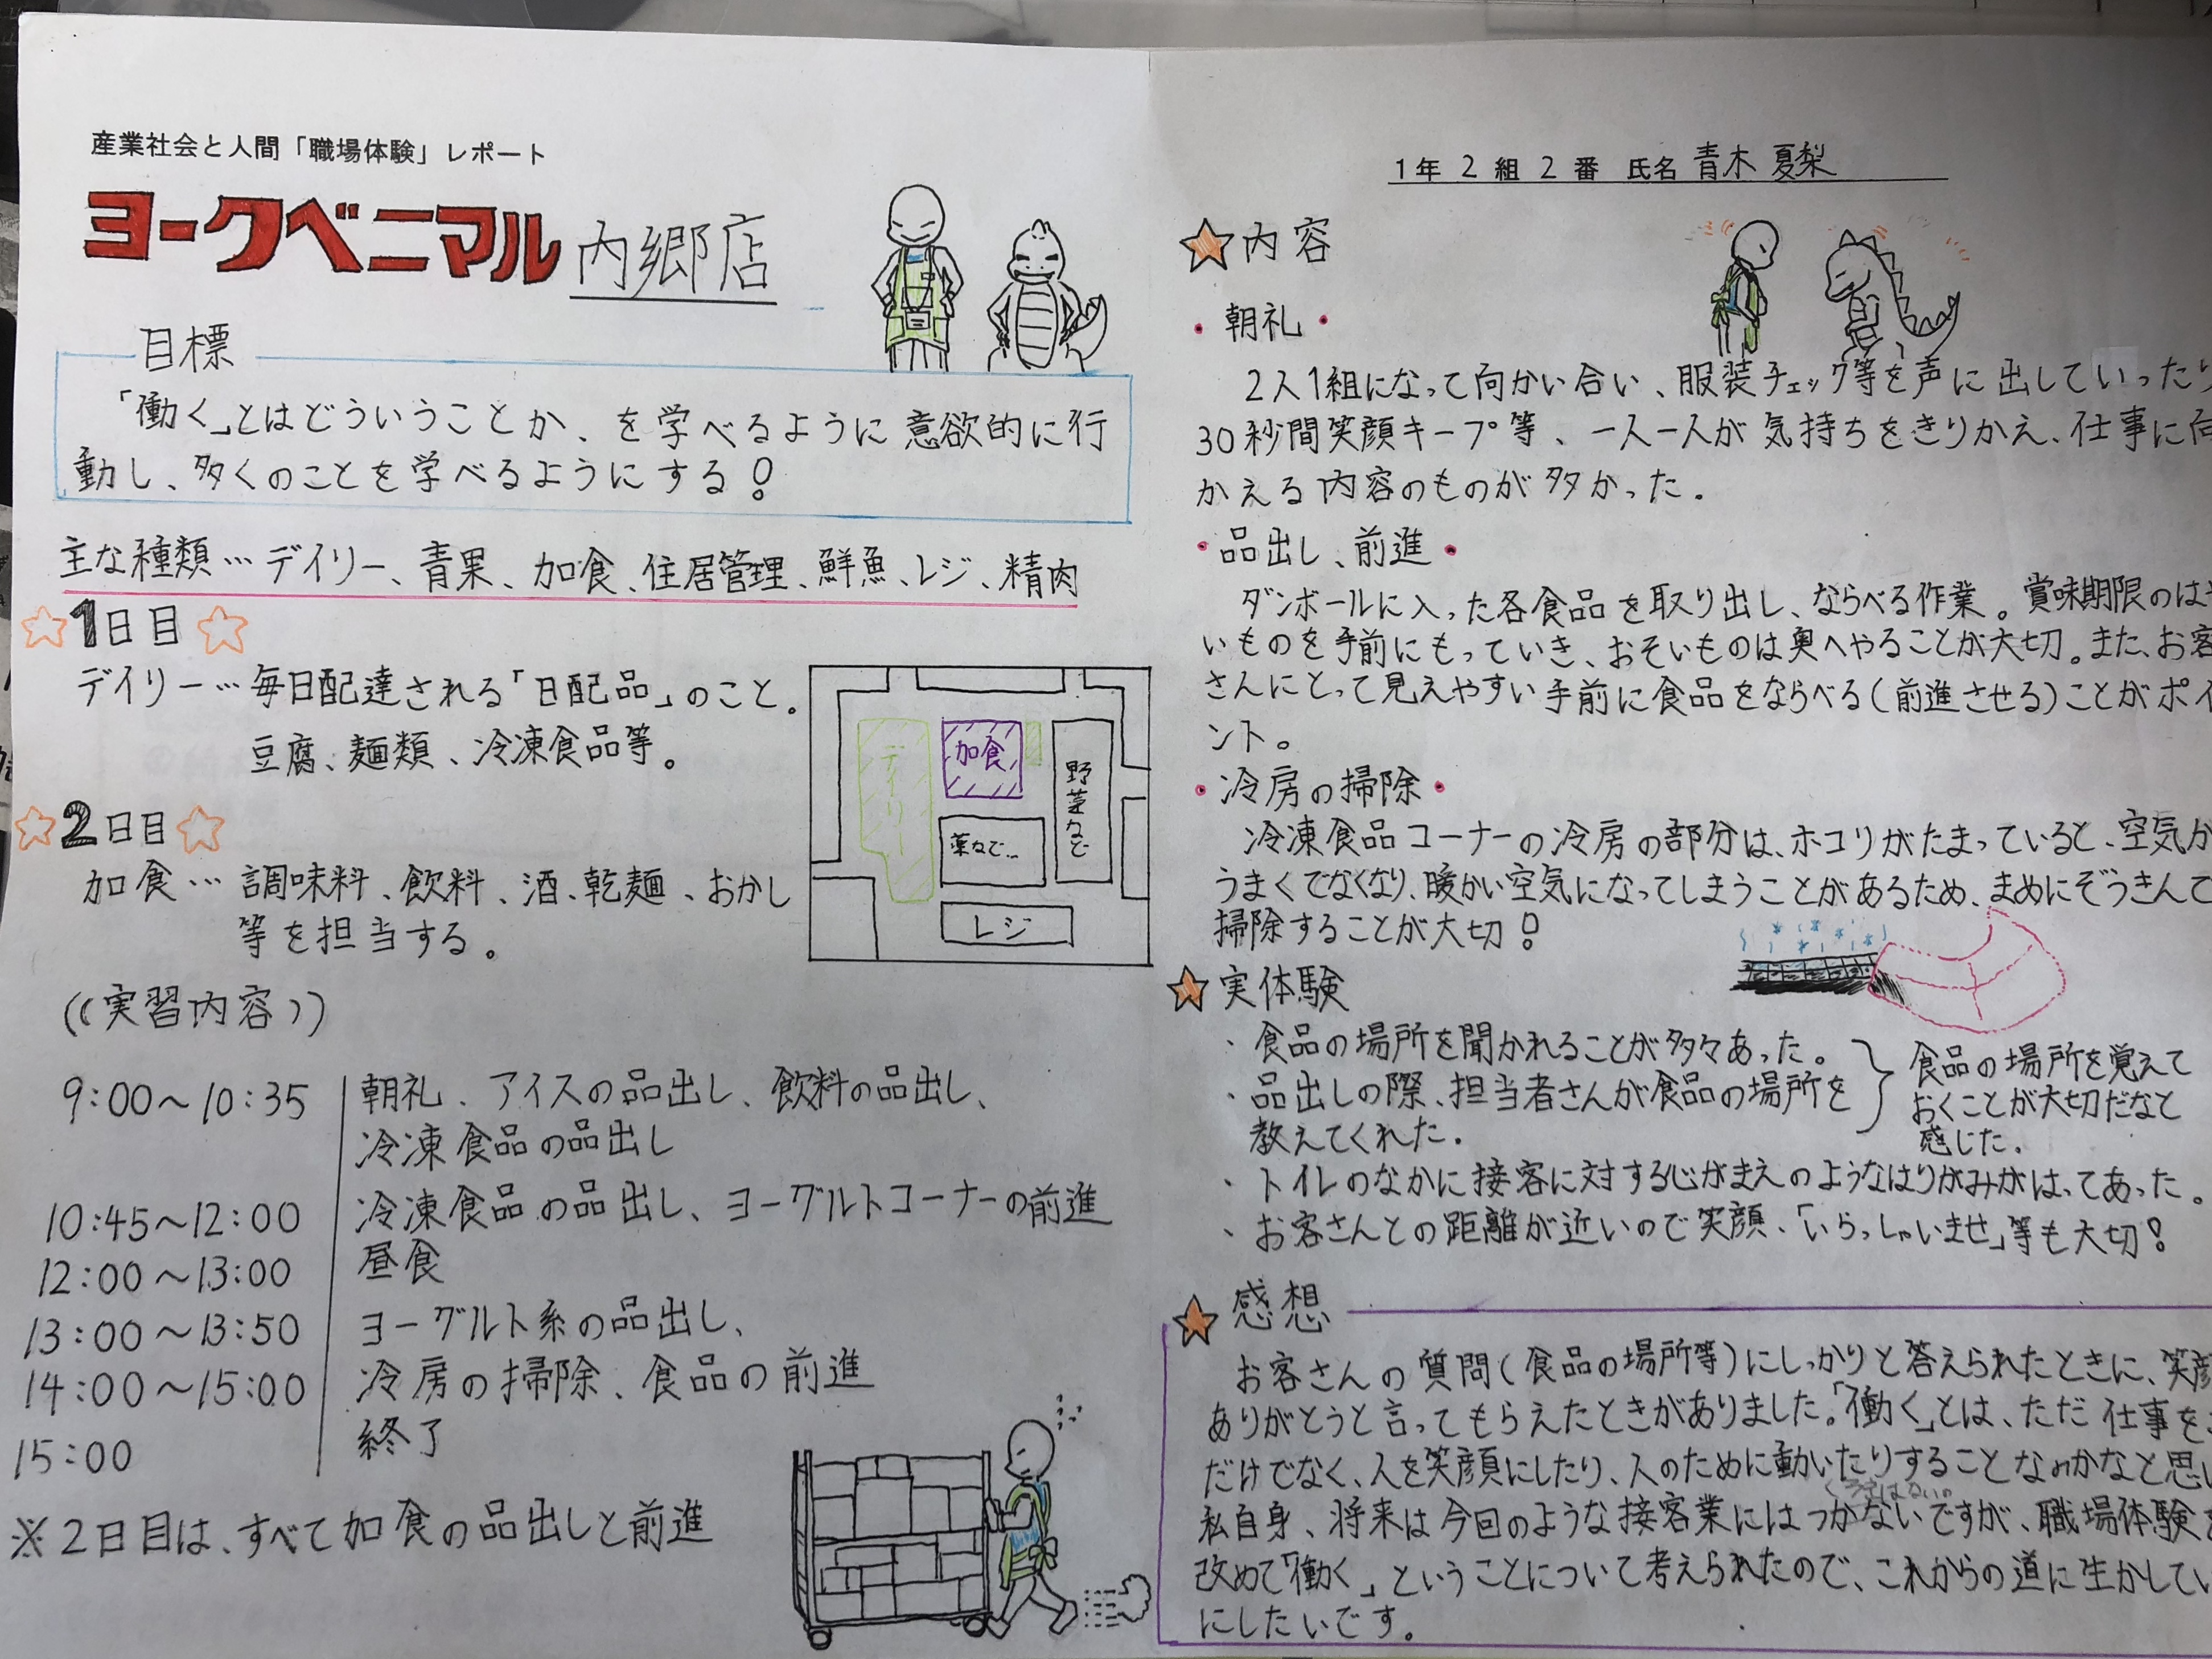 産業社会と人間「職場体験」レポート
ヨークベニマル 内郷店
目標
「働く」とはどういうことか、を学べるように意欲的に行
動し、多くのことを学べるようにする!
主な種類…デイリー、青果、加食、住居管理、鮮魚、レジ、精肉
1日目
デイリー…毎日配達される「日配品」のこと。
豆腐、麺類、冷凍食品等。
2日目
加食…調味料、飲料、酒、乾麺、おかし
等を担当する。
デイリー
加食
野菜など
薬など…
レジ
((実習内容))
9:00~10:35 朝礼、アイスの品出し、飲料の品出し、
冷凍食品の品出し
10:45~12:00 冷凍食品の品出し、ヨーグルトコーナーの前進
12:00~13:00 昼食
13:00~13:50 ヨーグルト系の品出し、
14:00~15:00 冷房の掃除、食品の前進
15:00 終了
※2日目は、すべて加食の品出しと前進
1年 2 組 2 番 氏名 青木 夏梨
内容
・朝礼・
2人1組になって向かい合い、服装チェック等を声に出していったり
30秒間笑顔キープ等、一人一人が気持ちをきりかえ、仕事に向
かえる内容のものが多かった。
・品出し、前進・
ダンボールに入った各食品を取り出し、ならべる作業。賞味期限のはや
いものを手前にもっていき、おそいものは奥へやることが大切。また、お客
さんにとって見えやすい手前に食品をならべる(前進させる)ことがポイ
ント。
・冷房の掃除・
冷凍食品コーナーの冷房の部分は、ホコリがたまっていると、空気が
うまくでなくなり、暖かい空気になってしまうことがあるため、まめにぞうきんで
掃除することが大切!
実体験
・食品の場所を聞かれることが多々あった。
・品出しの際、担当者さんが食品の場所を
教えてくれた。
食品の場所を覚えて
おくことが大切だなと
感じた。
・トイレのなかに接客に対する心がまえのようなはりがみがはってあった。
・お客さんとの距離が近いので笑顔、「いらっしゃいませ」等も大切!
感想
お客さんの質問(食品の場所等)にしっかりと答えられたときに、笑顔
ありがとうと言ってもらえたときがありました。「働く」とは、ただ仕事を
だけでなく、人を笑顔にしたり、人のために動いたりすることなのかなと思い
私自身、将来は今回のような接客業にはつかないですが、職場体験を
改めて「働く」ということについて考えられたので、これからの道に生かしてい
にしたいです。